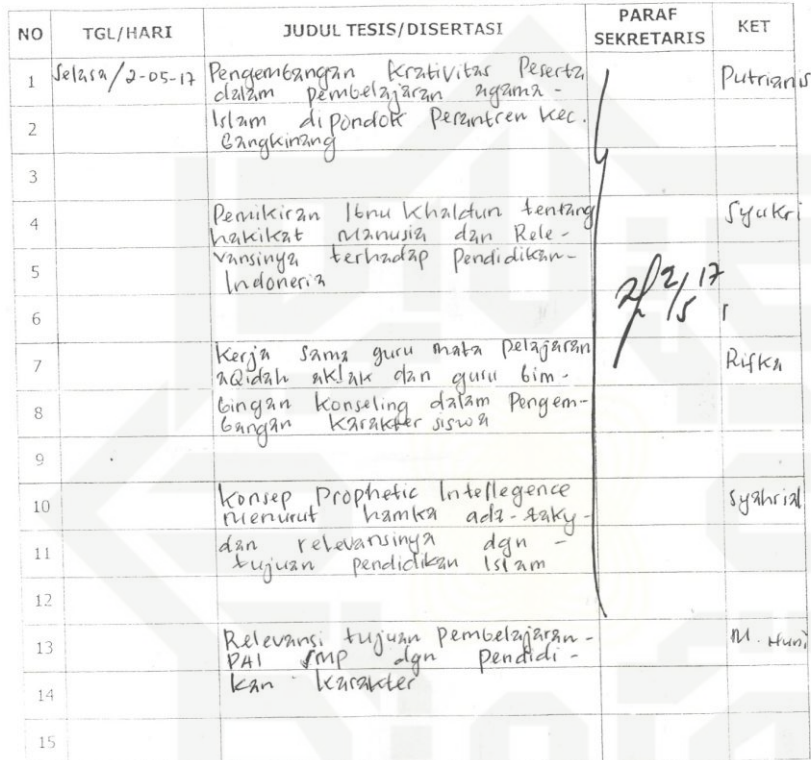 NO TGL/HARI JUDUL TESIS/DISERTASI PARAF SEKRETARIS KET
1 Selasa/2-05-17 Pengembangan Krativitas Peserta Putrianis
dalam pembelajaran agama -
2 Islam dipondok Pesantren Kec.
Bangkinang
3
4 Pemikiran Ibnu Khaldun tentang Syukri
hakikat Manusia dan Rele-
5 vansinya terhadap Pendidikan-
Indonesia
2/5 17
6
7 Kerja sama guru mata pelajaran Rifka
aQidah aklak dan guru bim-
8 bingan Konseling dalam Pengem-
bangan Karakter siswa
9
10 Konsep Prophetic Intellegence Syahrial
menurut hamka
11 dan relevansinya dgn -
tujuan pendidikan Islam
12
13 Relevansi tujuan Pembelajaran- M. Huni
PAI SMP dgn pendidi-
14 kan Karakter
15